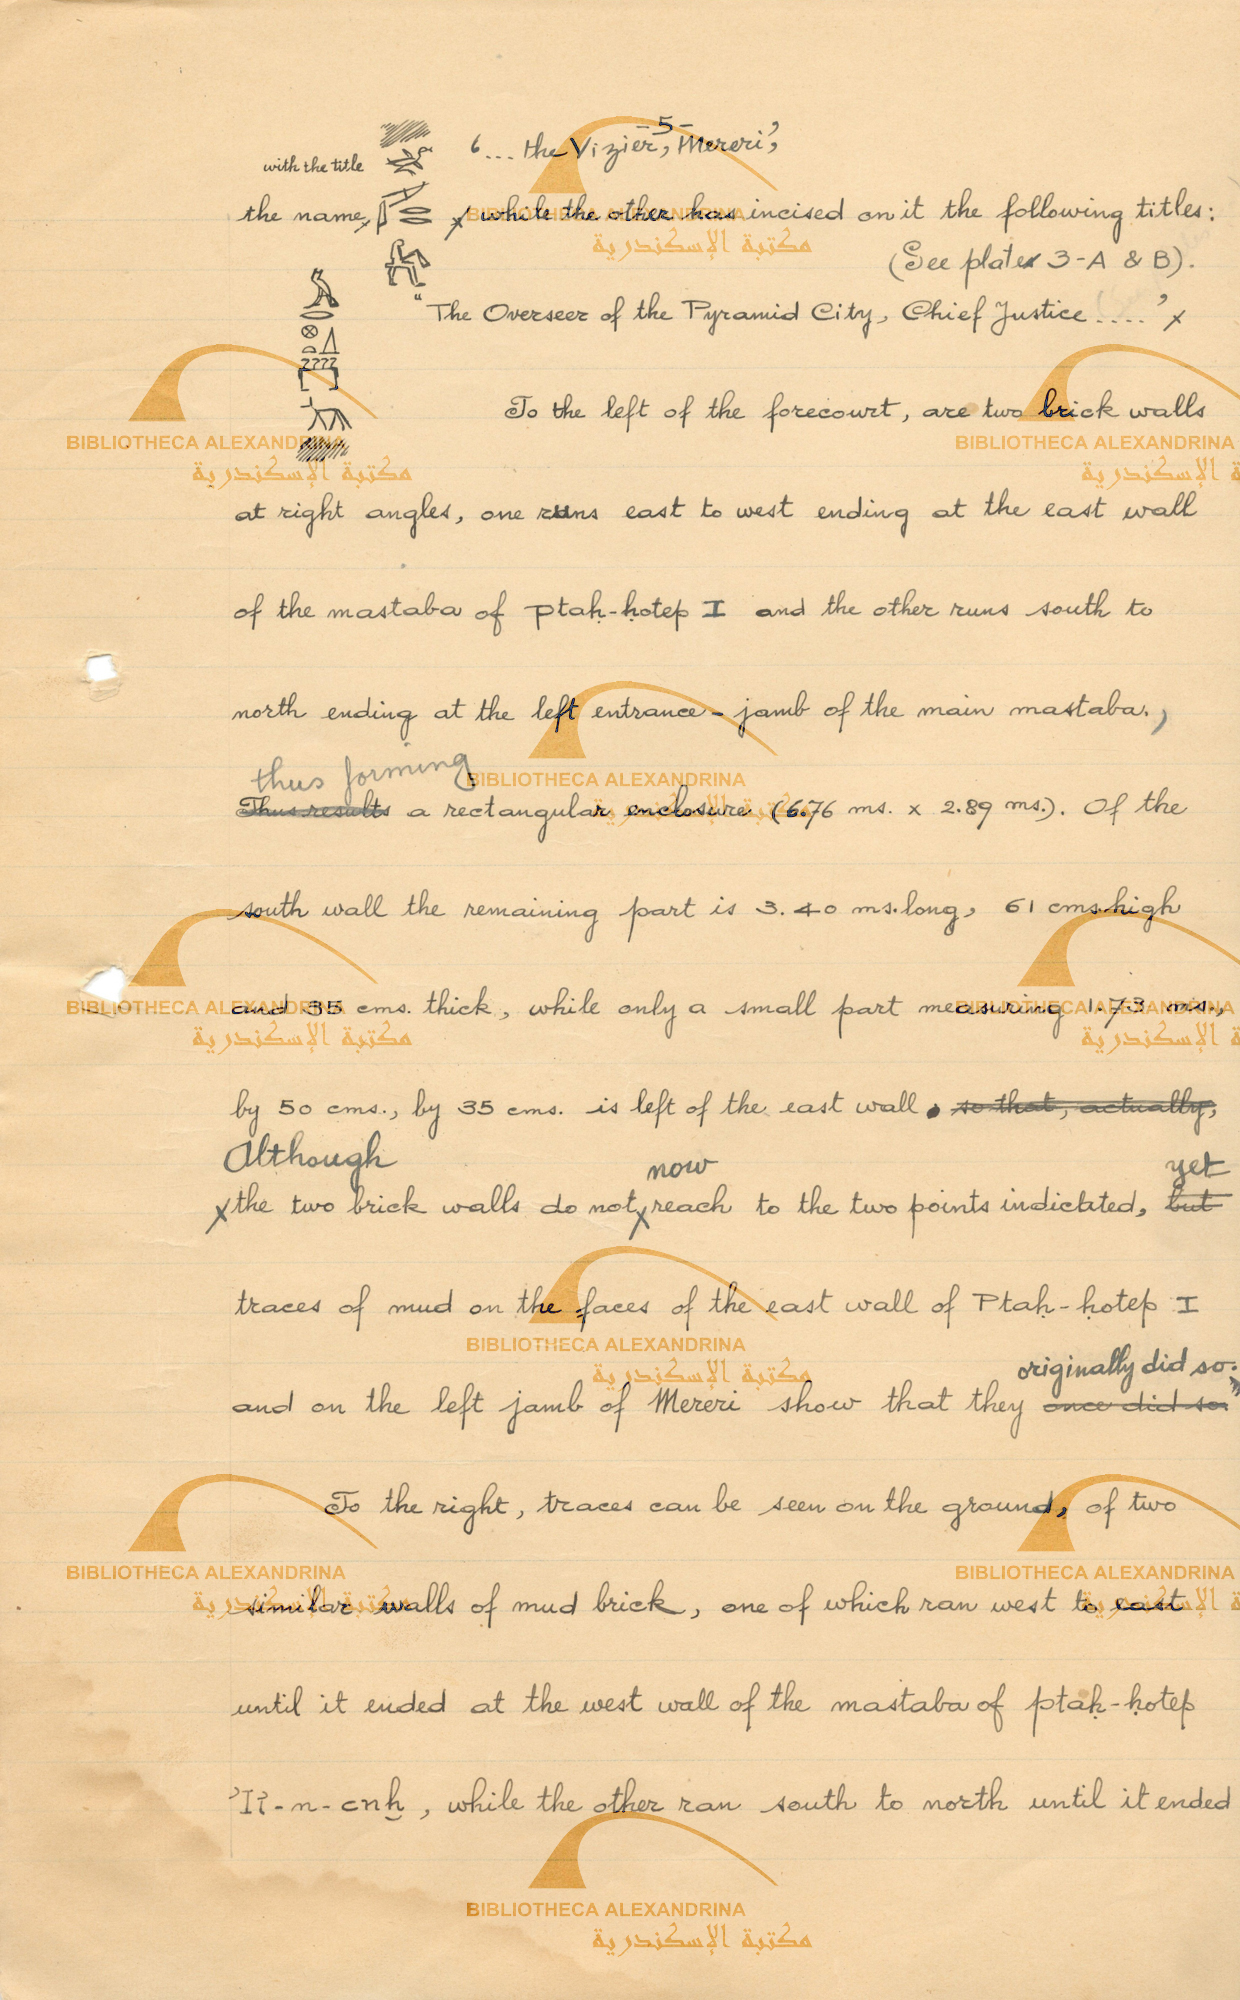 -5-
'... the Vizier, Mereri',
with the title
the name, while the other has incised on it the following titles:
(See plates 3-A & B).
"The Overseer of the Pyramid City, Chief Justice ....'
To the left of the forecourt, are two brick walls
at right angles, one runs east to west ending at the east wall
of the mastaba of Ptaḥ-ḥotep I and the other runs south to
north ending at the left entrance-jamb of the main mastaba.,
thus forming
Thus results a rectangular enclosure (6.76 ms. x 2.89 ms.). Of the
south wall the remaining part is 3.40 ms. long, 61 cms. high
and 35 cms. thick, while only a small part measuring 1.73 ms.,
by 50 cms., by 35 cms. is left of the east wall. so that, actually,
Although now yet
x the two brick walls do not x reach to the two points indictated, but
traces of mud on the faces of the east wall of Ptaḥ-ḥotep I
originally did so.
and on the left jamb of Mereri show that they once did so.
To the right, traces can be seen on the ground, of two
similar walls of mud brick, one of which ran west to east
until it ended at the west wall of the mastaba of Ptaḥ-ḥotep
while the other ran south to north until it ended
BIBLIOTHECA ALEXANDRINA
مكتبة الإسكندرية